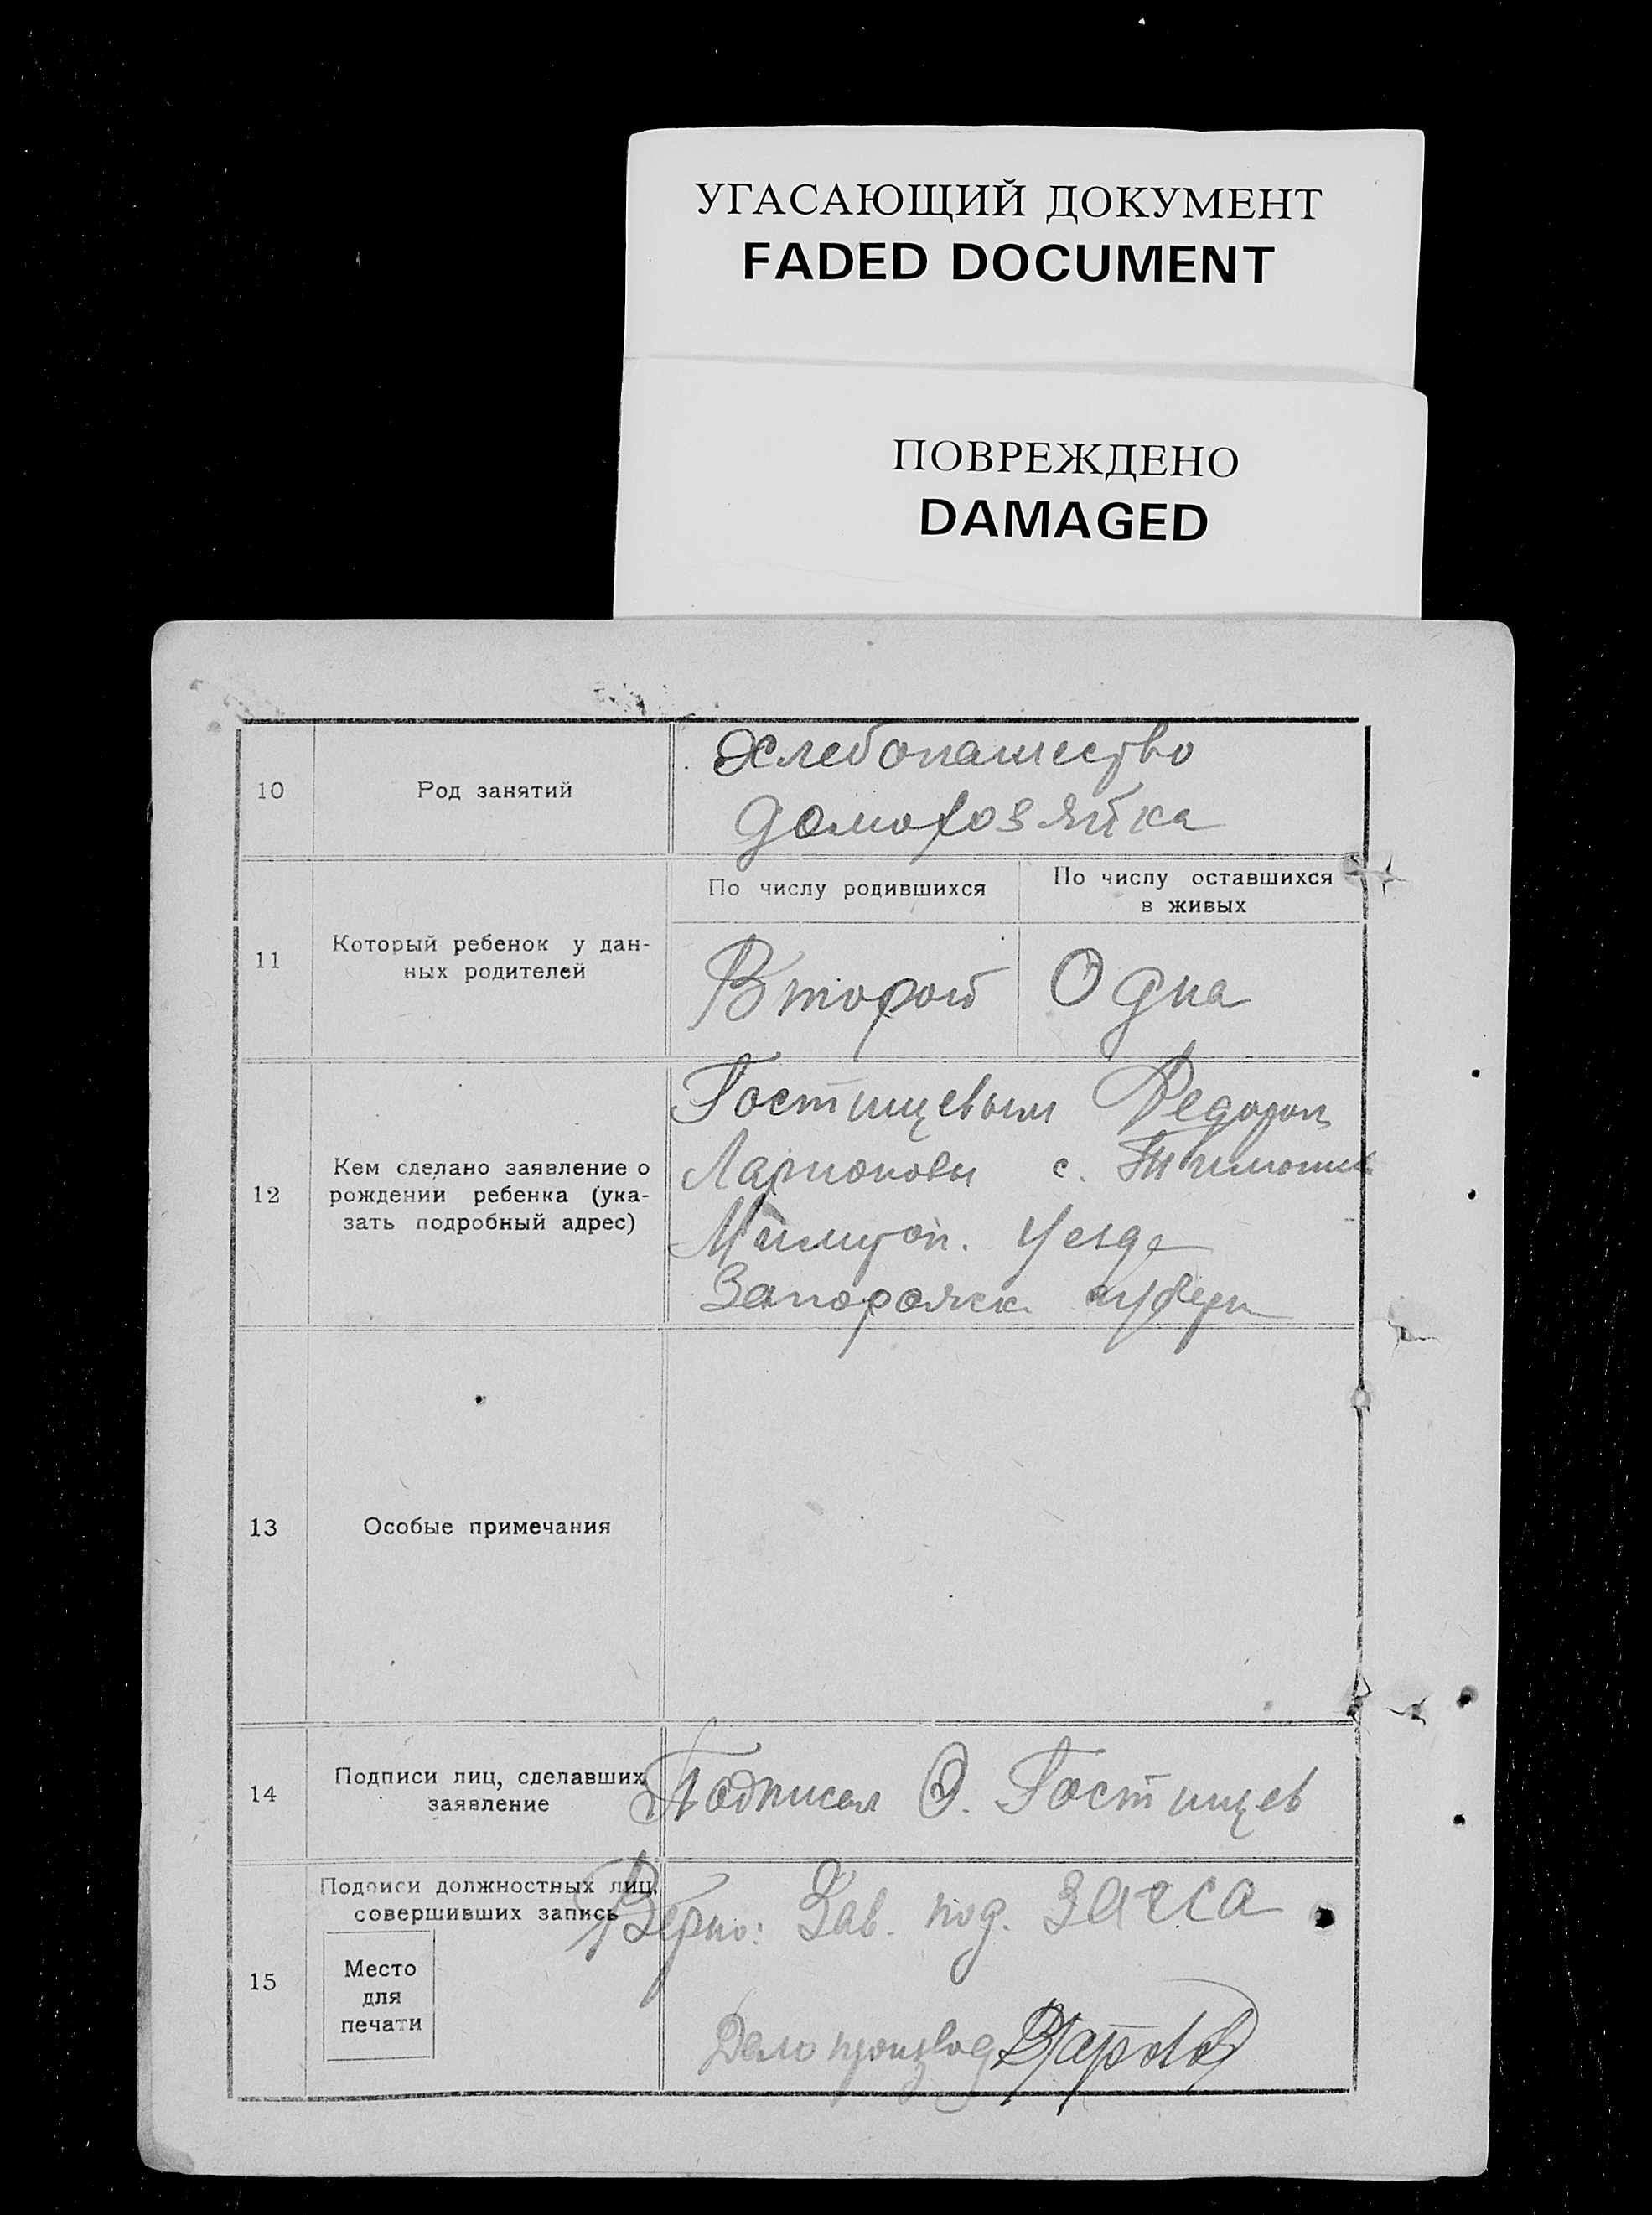 УГАСАЮЩИЙ ДОКУМЕНТ
FADED DOCUMENT
ПОВРЕЖДЕНО
DAMAGED
10
Род занятий
Хлебопашество
домохозяйка
11
Который ребенок у дан-
ных родителей
По числу родившихся
Второй
По числу оставшихся
в живых
Одна
12
Кем сделано заявление о
рождении ребенка (ука-
зать подробный адрес)
Гостищевым Федором
с.
Уезда
Запорожск губерн
13
Особые примечания
14
Подписи лиц, сделавших
заявление
Подписал Ф. Гостищев
15
Подписи должностных лиц,
совершивших запись
Место
для
печати
Верно: Зав. под. Загса
Делопроизвод